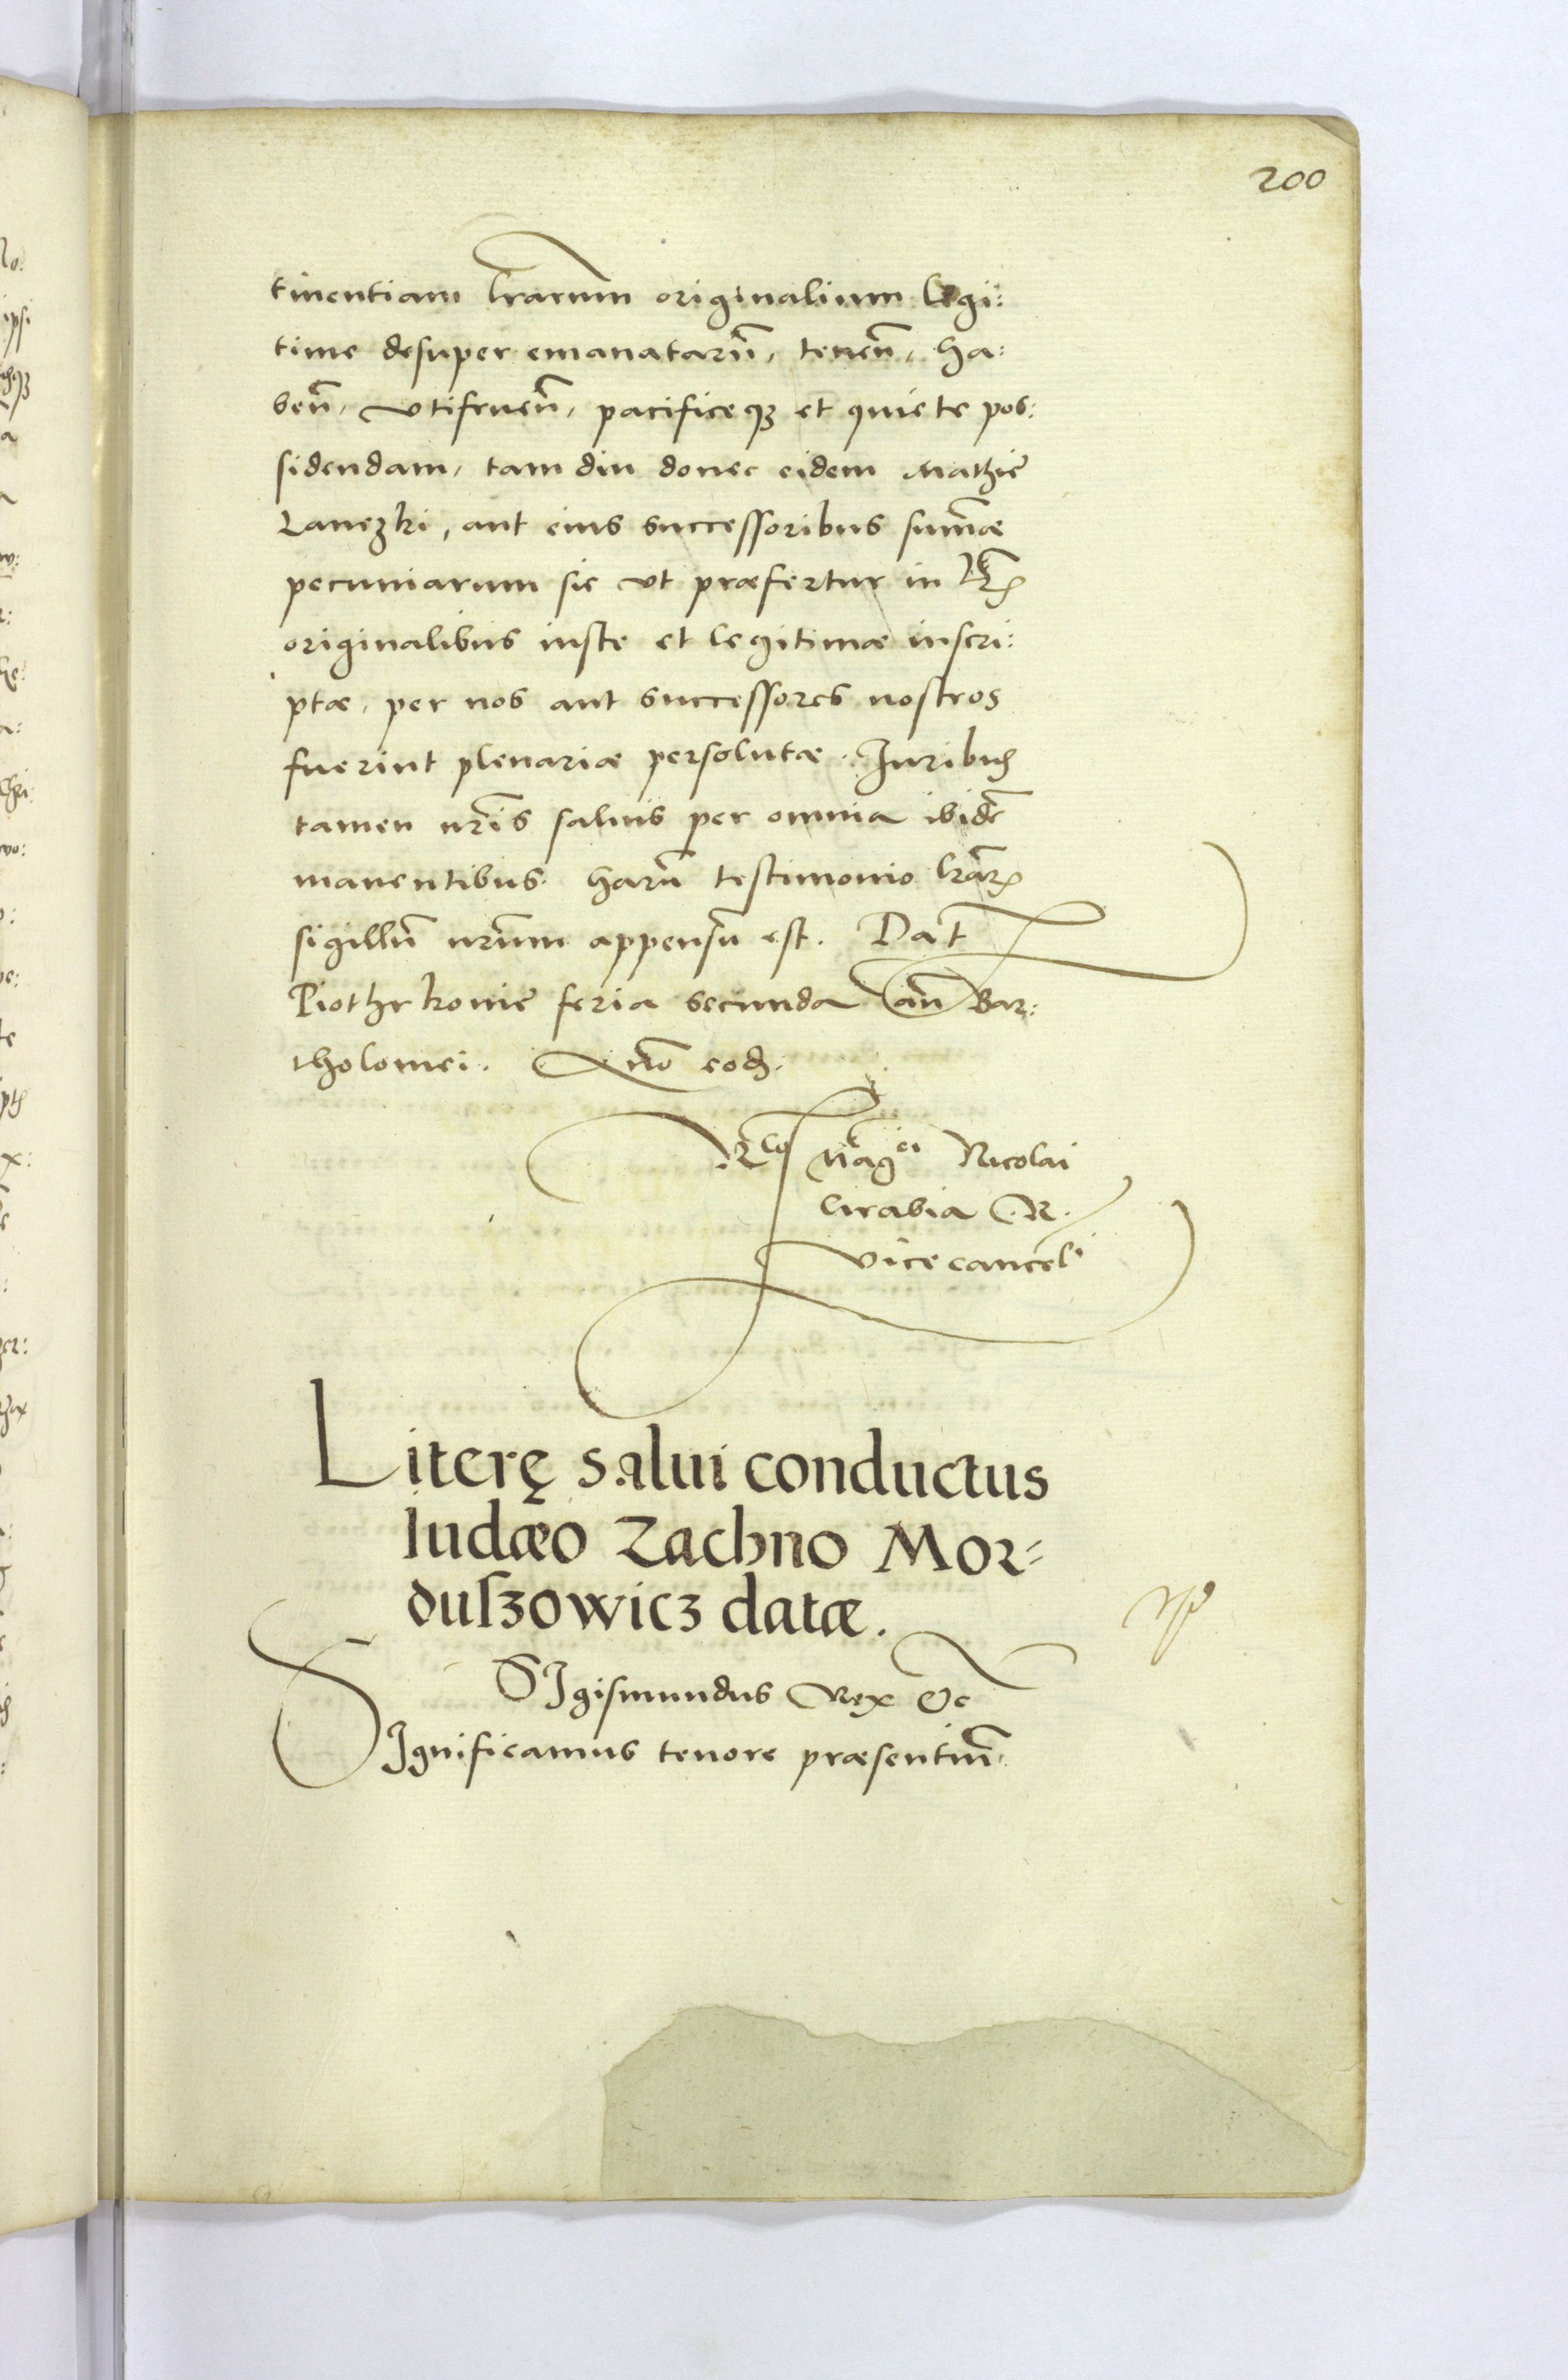 200
tinentiam lrarum originalium legi:
time desuper emanatarũ, tenẽn, ha:
beñ, vtifrueñ, pacificeqꝫ et quiete pos:
sidendam, tam diu donec eidem Mathie
Lanczki, aut eius successoribus sum̃æ
pecuniarum sic vt præfertur in lr̃is
originalibus iuste et legitimæ inscri:
ptæ, per nos aut successores nostros
fuerint plenariæ persolutæ. Juribus
tamen nr̃is saluis per omnia ibidẽ
manentibus. harũ testimonio lrãrꝫ
sigillũ nr̃um appensũ est. Dat̃
Piothrkouie feria secunda añ Bar:
tholomei. Anno eodꝫ.
Rlo Mag̃ci Nicolai
Grabia R.
vicecancel̃
Literę salui conductus
Iudæo Zachno Mor⸗
duſzowicz datæ.
SIgismundus Rex &c
SIgnificamus tenore præsentiũ.